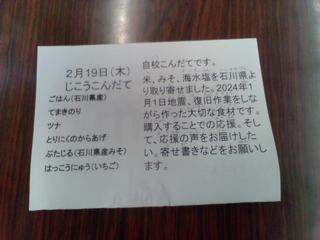 2月19日(木)
じこうこんだて
ごはん(石川県産)
てまきのり
ツナ
とりにくのからあげ
ぶたじる(石川県産みそ)
はっこうにゅう(いちご)
自校こんだてです。
米、みそ、海水塩を石川県よ
り取り寄せました。2024年1
月1日地震、復旧作業をしな
がら作った大切な食材です。
購入することでの応援。そし
て、応援の声をお届けした
い。寄せ書きなどをお願いし
ます。